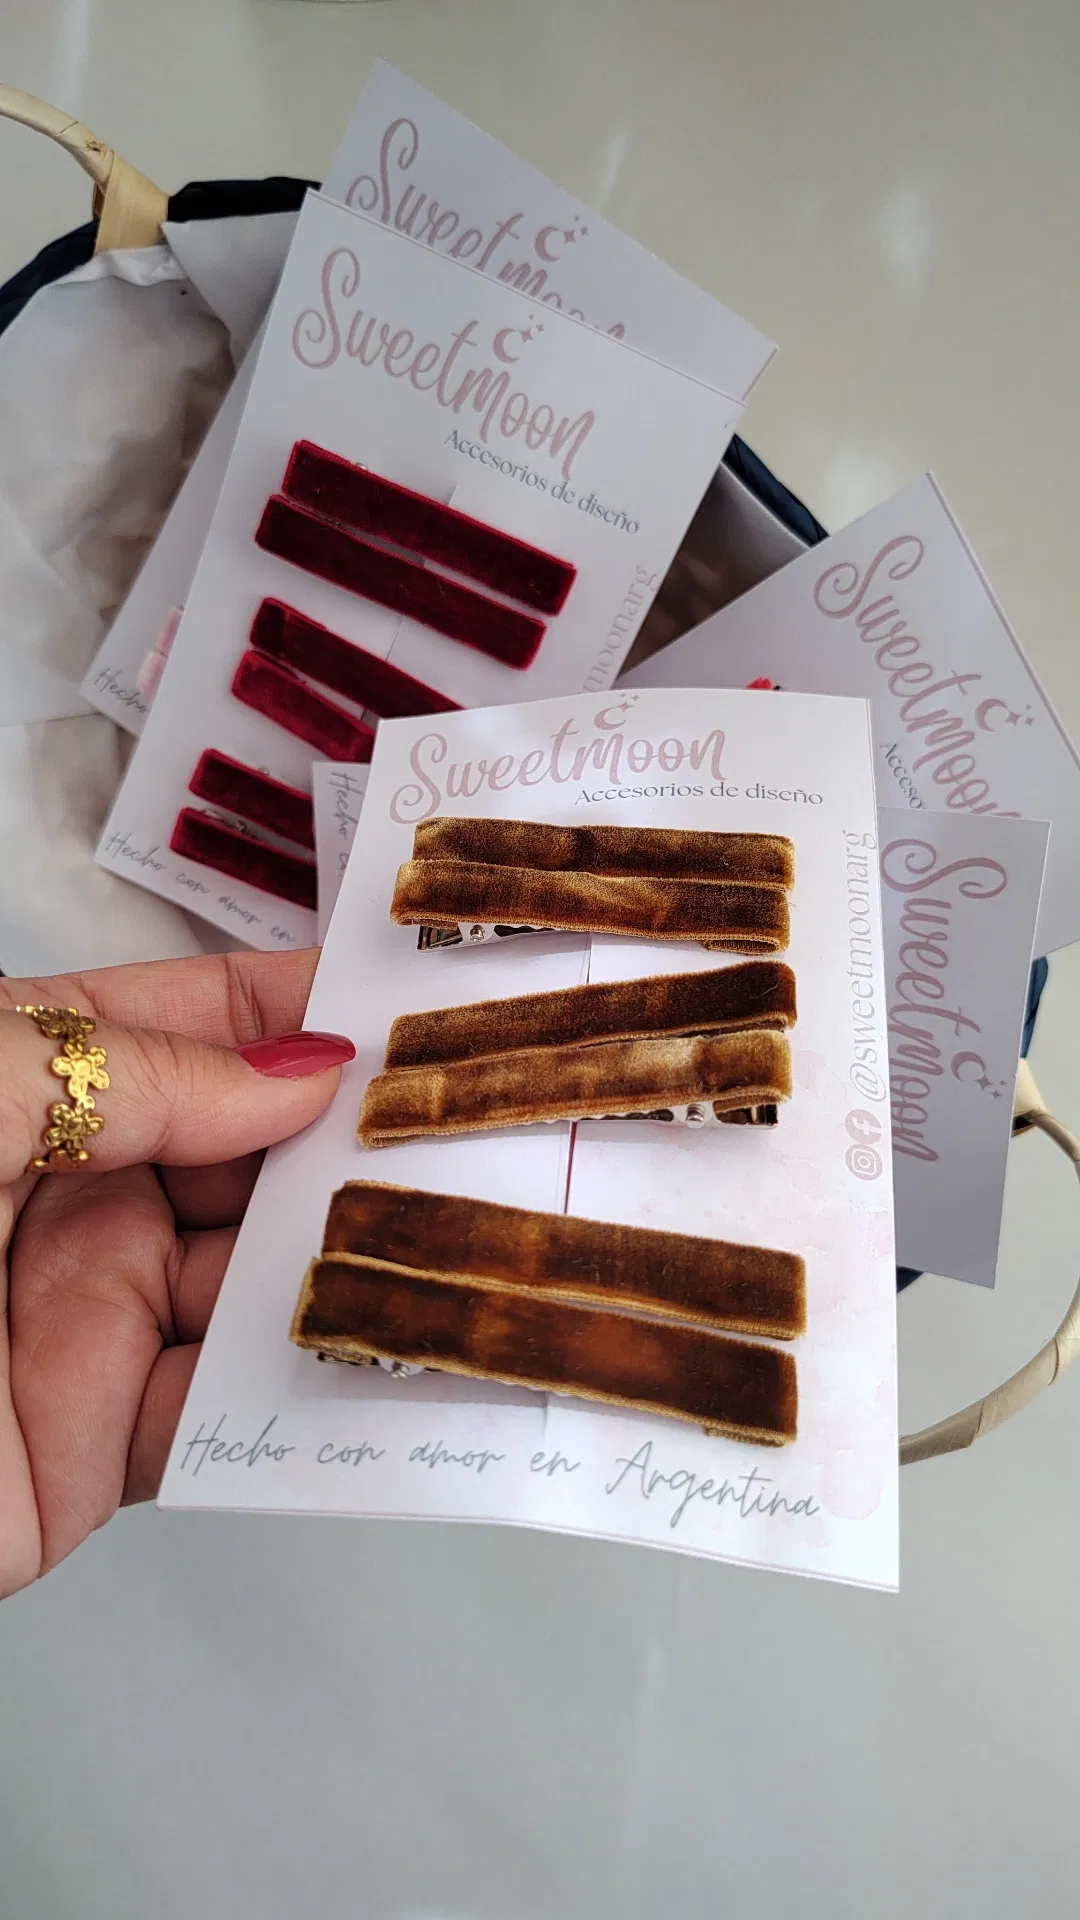 Sweetmoon
Sweetmoon
Accesorios de diseño
moonarg
Hecho
Hecho con amor en
Hecho
Sweetmoon
Acceso
Sweetmoon
Sweetmoon
Accesorios de diseño
@sweetmoonarg
Hecho con amor en Argentina